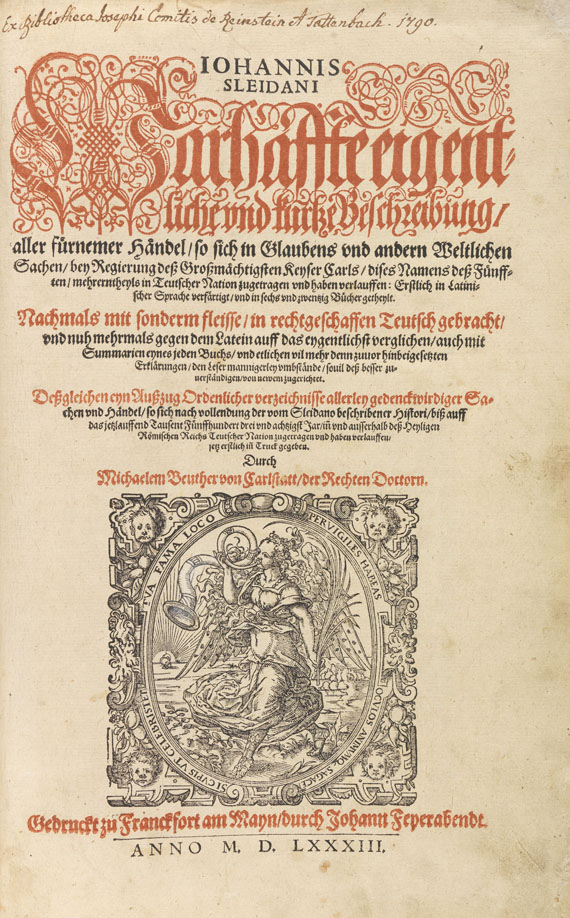 Ex Bibliotheca Josephi Comitis de Reinstein et Tattenbach. 1790.
IOHANNIS
SLEIDANI
Warhaffte eigent-
liche vnd kurtze Beschreibung /
aller fürnemer Händel / so sich in Glaubens vnd andern Weltlichen
Sachen / bey Regierung deß Großmächtigsten Keyser Carls / dises Namens deß Fünff-
ten / mehrerntheyls in Teutscher Nation zugetragen vnd haben verlauffen: Erstlich in Latini-
scher Sprache verfärtigt / vnd in sechs vnd zwentzig Bücher getheylt.
Nachmals mit sonderm fleisse / in rechtgeschaffen Teutsch gebracht /
vnd nuh mehrmals gegen dem Latein auff das eygentlichst verglichen / auch mit
Summarien eynes jeden Buchs / vnd etlichen vil mehr denn zuuor hinbeigesetzten
Erklärungen / den Leser mannigerley vmbstände / souil deß besser zu-
uerständigen / von newem zugerichtet.
Deßgleichen eyn Außzug Ordenlicher verzeichnisse allerley gedenckwirdiger Sa-
chen vnd Händel / so sich nach vollendung der vom Sleidano beschribener Histori / biß auff
das jetzlauffend Tausent Fünffhundert drei vnd achtzigst Jar / iñ vnd ausserhalb deß Heyligen
Römischen Reichs Teutscher Nation zugetragen vnd haben verlauffen /
jetz erstlich iñ Truck gegeben.
Durch
Michaelem Beuther von Carlstatt / der Rechten Doctorn.
SI CVPIS VT CELEBRI STET TVA FAMA LOCO
PERVIGILES HABEAS OCVLOS ANIMVMQ SAGACĒ
Gedruckt zů Franckfort am Mayn / durch Johann Feyerabendt.
ANNO M. D. LXXXIII.